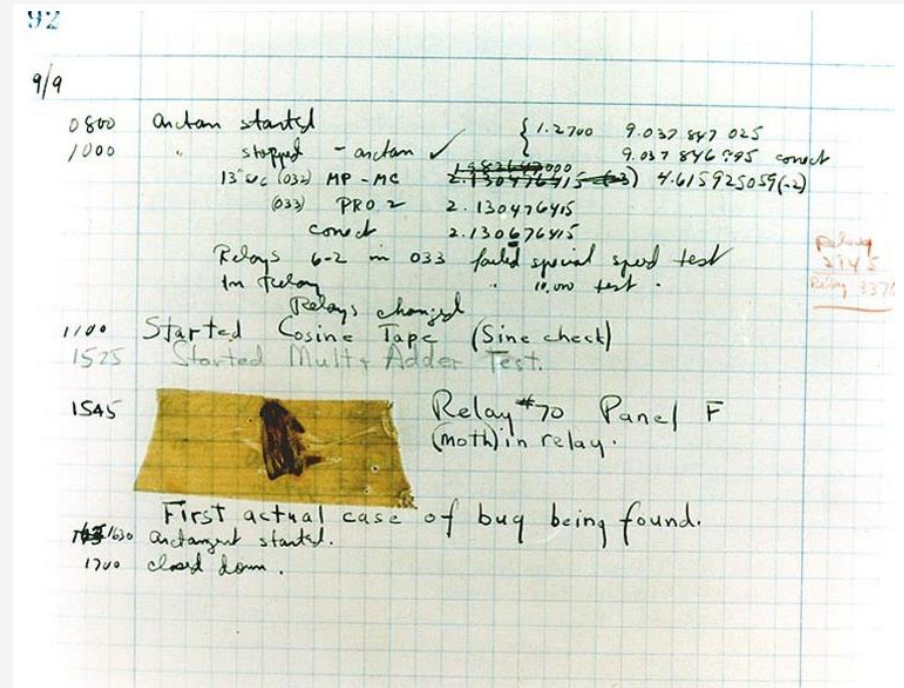 92
9/9
0800 Antan started
1000 " stopped - antan ✓ { 1.2700 9.037 847 025
9.037 846 995 conect
13"uc (032) MP - MC 2.130476415 (-3) 4.615925059(-2)
(033) PRO 2 2.130476415
conect 2.130676415
Relays 6-2 in 033 failed special speed test
In Relay " 10,000 test .
Relays changed
Relay
2145
Relay 3370
1100 Started Cosine Tape (Sine check)
1525 Started Mult+ Adder Test.
1545 Relay #70 Panel F
(moth) in relay.
First actual case of bug being found.
1630 antangent started.
1700 closed down .